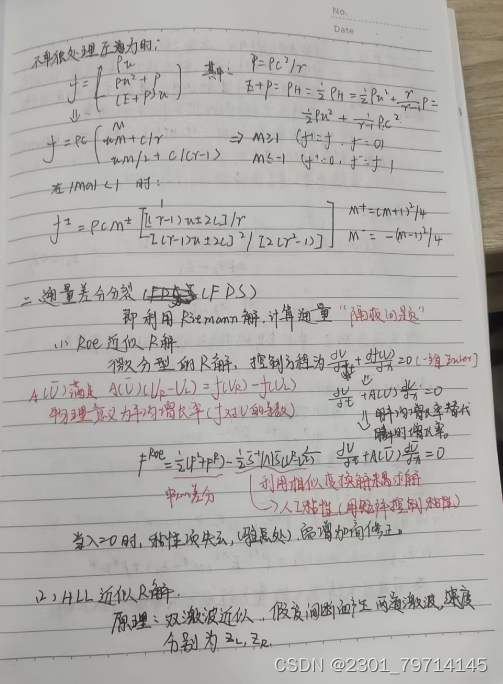 No.
Date
不单独处理压力时:
f = [ρu
ρu²+p
(E+p)u] 其中: P=ρc²/r
E+P=ρH=½ρu²+r/(r-1)P=
½ρu²+1/(r-1)ρc²
⇓
f=ρc(M
uM+c/r
uM/2+c/(r-1)) ⇒ M≥1 (f⁺=f, f⁻=0)
M≤-1 (f⁺=0, f⁻=f)
在|Ma|<1 时:
f±=ρcM± [1
[(r-1)u±2c]/r
[(r-1)u±2c]²/[2(r²-1)]] M⁺=(M+1)²/4
M⁻=-(M-1)²/4
二、通量差分分裂(FDS)
即利用Riemann解,计算通量 "隔板问题"
(1) Roe近似R解
微分型的R解,控制方程为 ∂U/∂t+∂f(U)/∂x=0 (一维Euler)
A(Ū)满足 A(Ū)(UR-UL)=f(UR)-f(UL)
⇓
∂U/∂t+A(U)∂U/∂x=0
物理意义为平均增长率(f对U的导数)
⇓ 用平均增长率替代
瞬时增长率。
∂U/∂t+A(Ū)∂U/∂x=0
中心差分
利用相似变换解耦求解
→人工粘性(用路径控制粘性)
当λ=0时,粘性项失去,(驻点处)需增加熵修正。
(2) HLL近似R解.
原理:双激波近似,假设间断面产生两道激波,速度
分别为ZL, ZR.
CSDN @2301_79714145